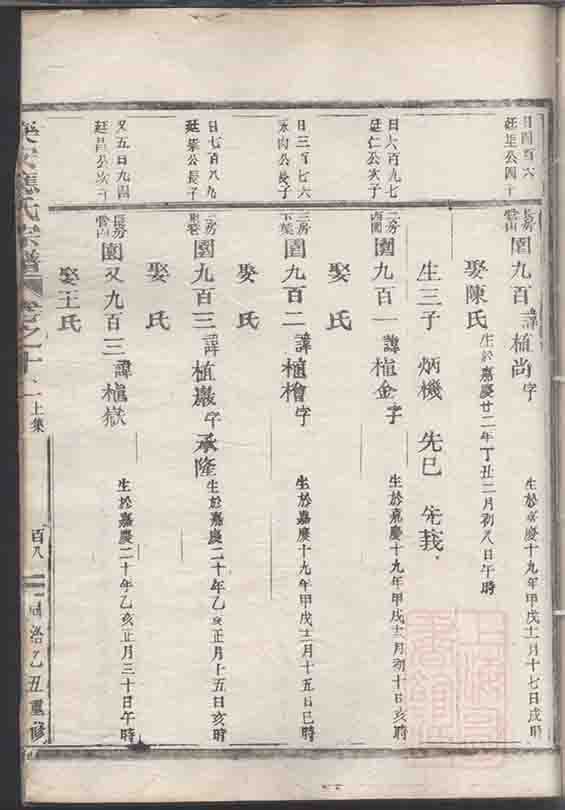 日四百六
廷里公四子
長房
雲山
園九百 諱植尚 字
生於嘉慶十九年甲戌十二月十七日戌時
娶陳氏 生於嘉慶廿二年丁丑二月初八日午時
生三子 炳機 先巳 先義
日六百九七
廷仁公次子
二房
園九百一 諱植金 字
生於嘉慶十九年甲戌十二月初十日亥時
娶 氏
日三百七六
永向公長子
三房
園九百二 諱植檜 字
生於嘉慶十九年甲戌十二月十五日巳時
娶 氏
日七百八九
廷梁公長子
二房
園九百三 諱植巖 字承隆
生於嘉慶二十年乙亥正月十五日亥時
娶 氏
又五百九四
廷昌公次子
長房
雲山
園又九百三 諱植嶽
生於嘉慶二十年乙亥正月三十日午時
娶王氏
應氏宗譜 卷之十二 上集 百八 同治乙丑重修